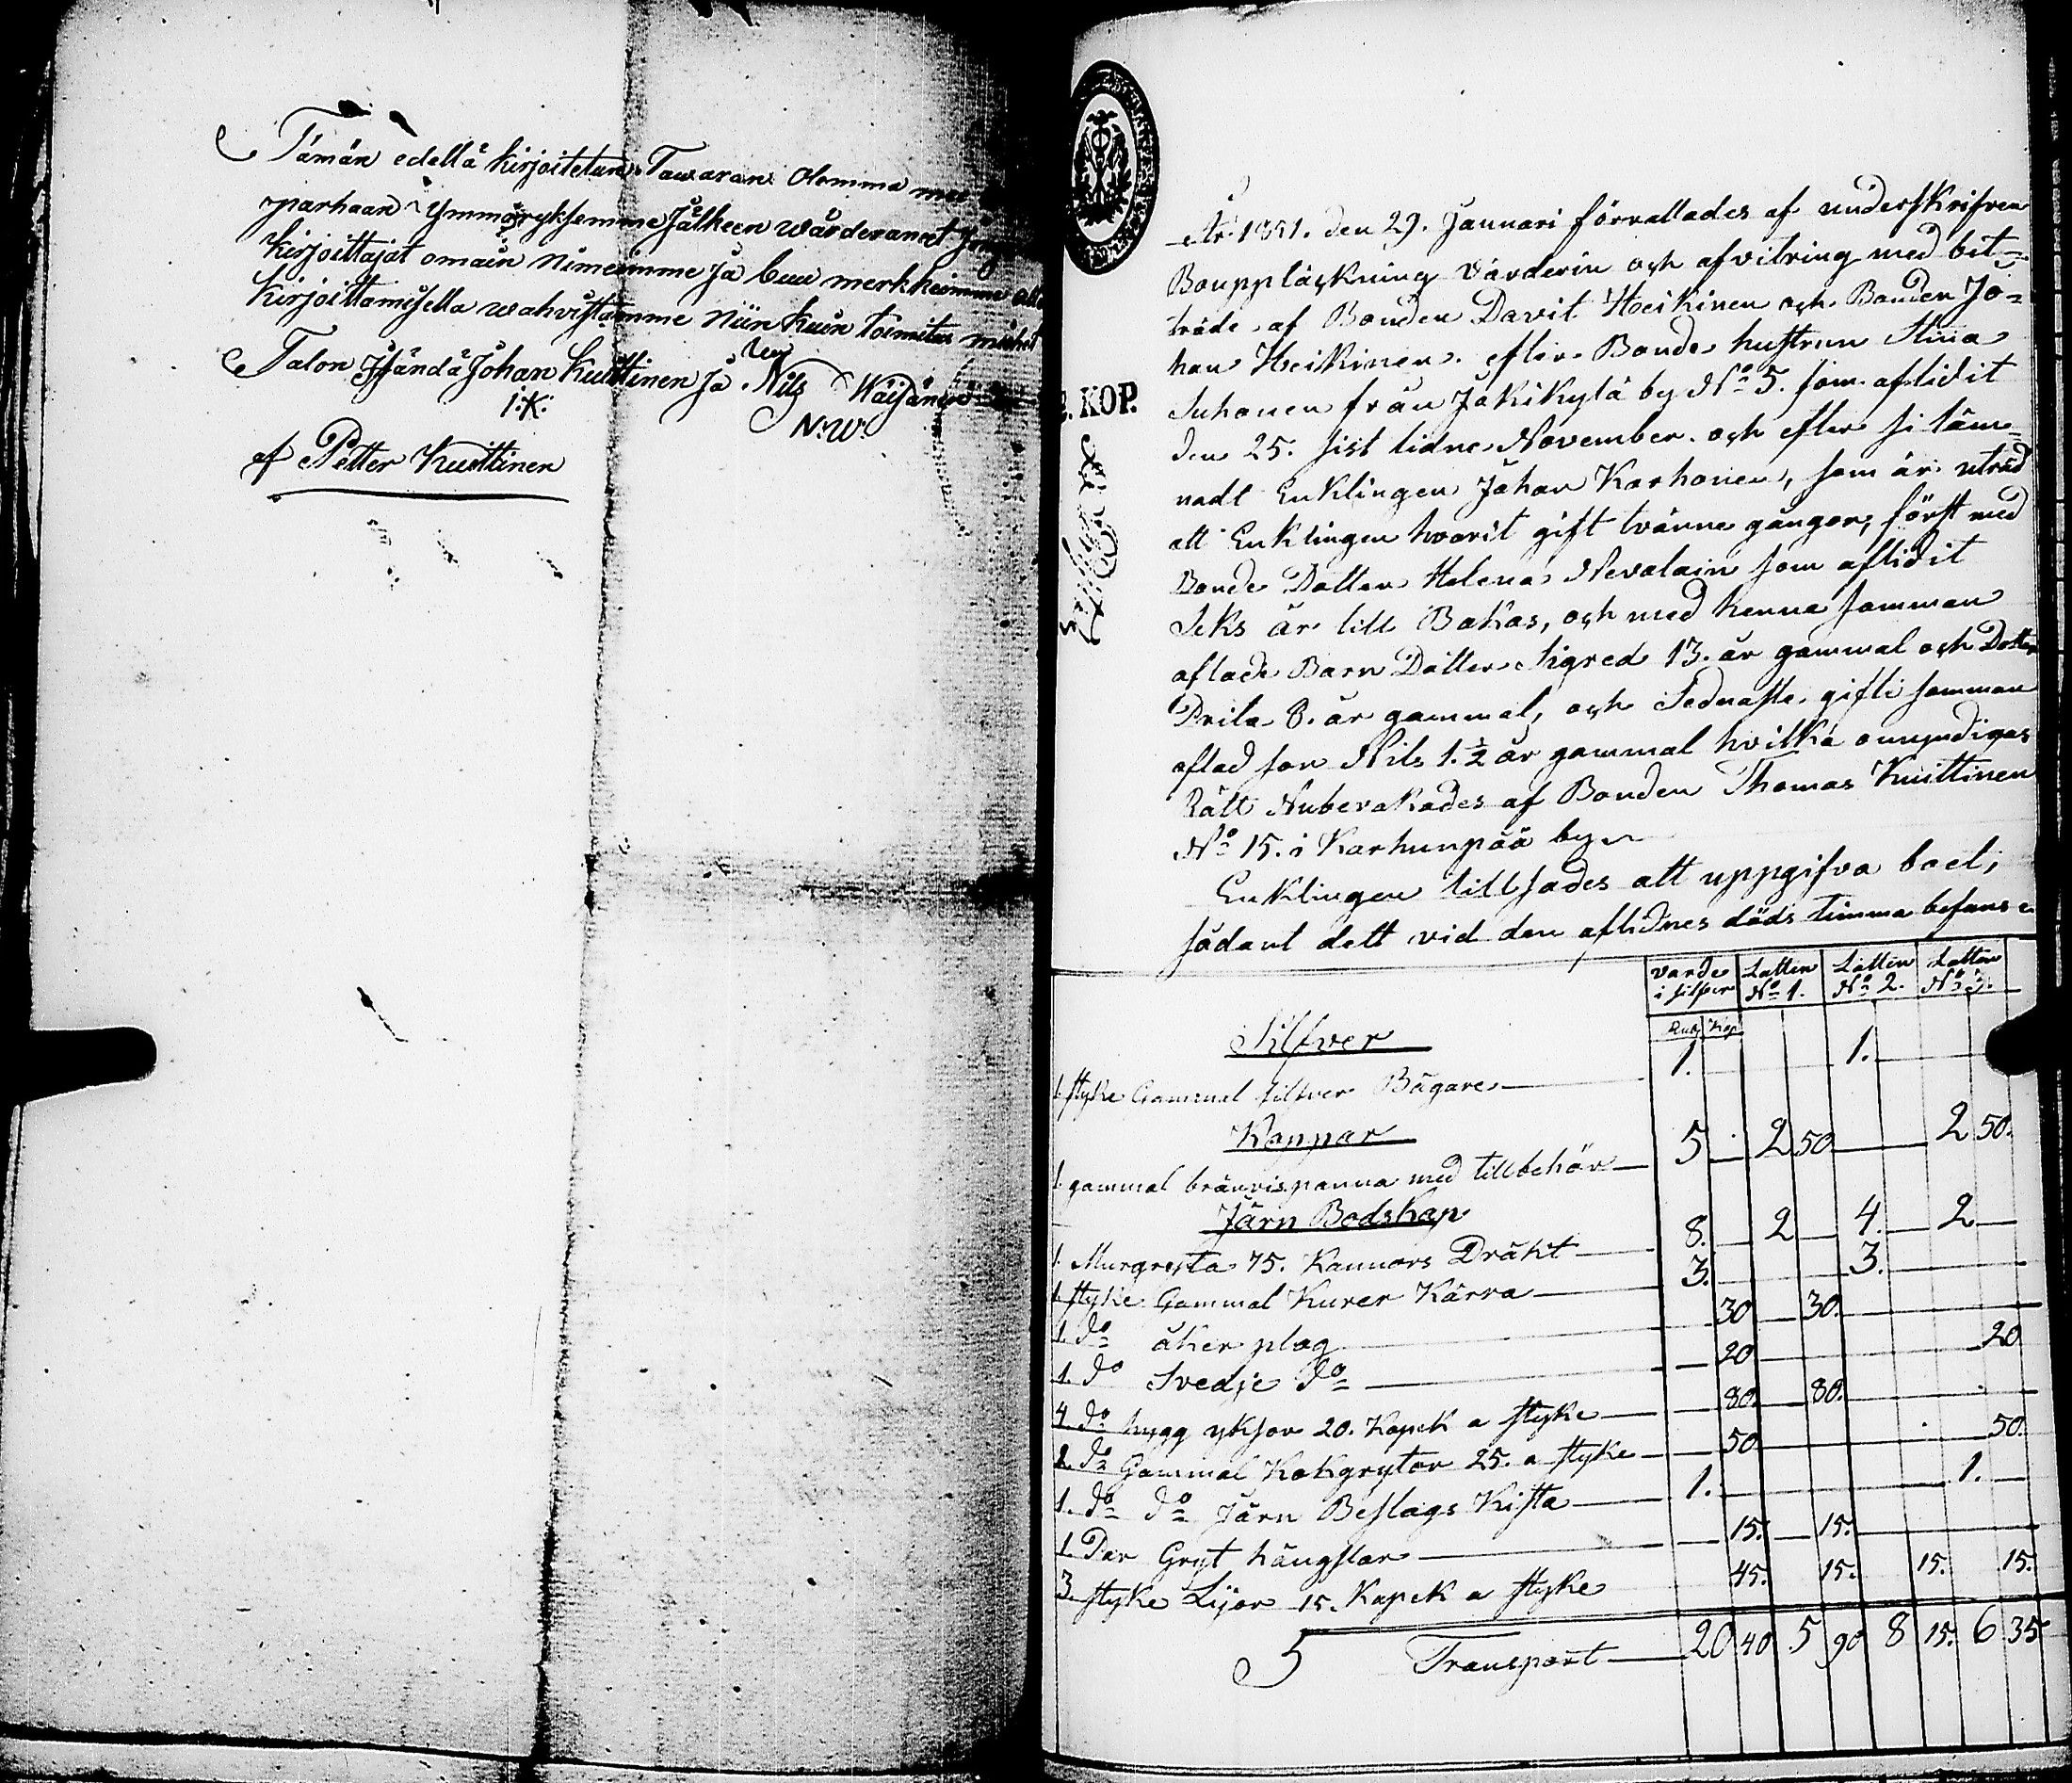 Tämän edellä kirjoitetun Tawaran Olemma me
parhaan Ymmärryksemme Jälkeen wärderanet
kirjoittajat omain nimeimme ja buu merkkeimme alle
kirjoittamisella wahvistamme niin kuin toimitus miehet
Talon Isändä Johan Kuittinen ja Nils Wäisänen
I:K: N:W:
af Petter Kuittinen
2. KOP.
År 1851. den 29. Januari förrättades af underskrifven
Bouppläskning värderin och afvitring med bit-
träde af Bonden Davit Heikinen och Bonden Jo-
han Heikinen. efter Bonde hustrun Stina
Suhonen från Jakikylä by No 5. som aflidit
den 25. sist lidne November. och efter si läm-
nadt Enklingen Johan Korhonen, som är uträd
att Enklingen hvarit gift tvänne gånger, först med
Bonde Dotter Helena Nevalain som aflidit
Seks år till Bakas, och med henne samman
aflade Barn Dotter Sigred 13. år gammal och Dotter
Brita 8. år gammal, och Sednaste gifte samman
aflad son Nils 1.½ år gammal hvilka omyndigas
Rätt Nubevakades af Bonden Thomas Kuittinen
No 15. i Karhunpää by
Enklingen tillsades att uppgifva boet,
sådant dett vid den aflidnes döds timma befans
värde i silfver Lotten No 1. Lotten No 2. Lotten No 3.
Rub Kop
Silfver
1. styke Gammal silfver Bägare 1. 1.
Koppar
1. gammal bränvispanna med tillbehör 5 2 50 2 50.
Järn Bodskap
1. Murgryta 75. Kannors Dräkt 8. 2 4. 2
1. styke Gammal Kurer Kärra 3. 3.
1. do åker plog 30 30.
1. do Svedje do 20 20
4. do hygg yksor 20. Kopek a styke 80. 80.
2. do Gammal Kokgrytor 25. a styke 50 50.
1. do do Järn Beslags Kista 1. 1.
1. Par Gryt hängslar 15. 15.
3. styke Lijor 15. Kopek a styke 45. 15. 15. 15.
5 Transport 20 40 5 90 8 15. 6 35